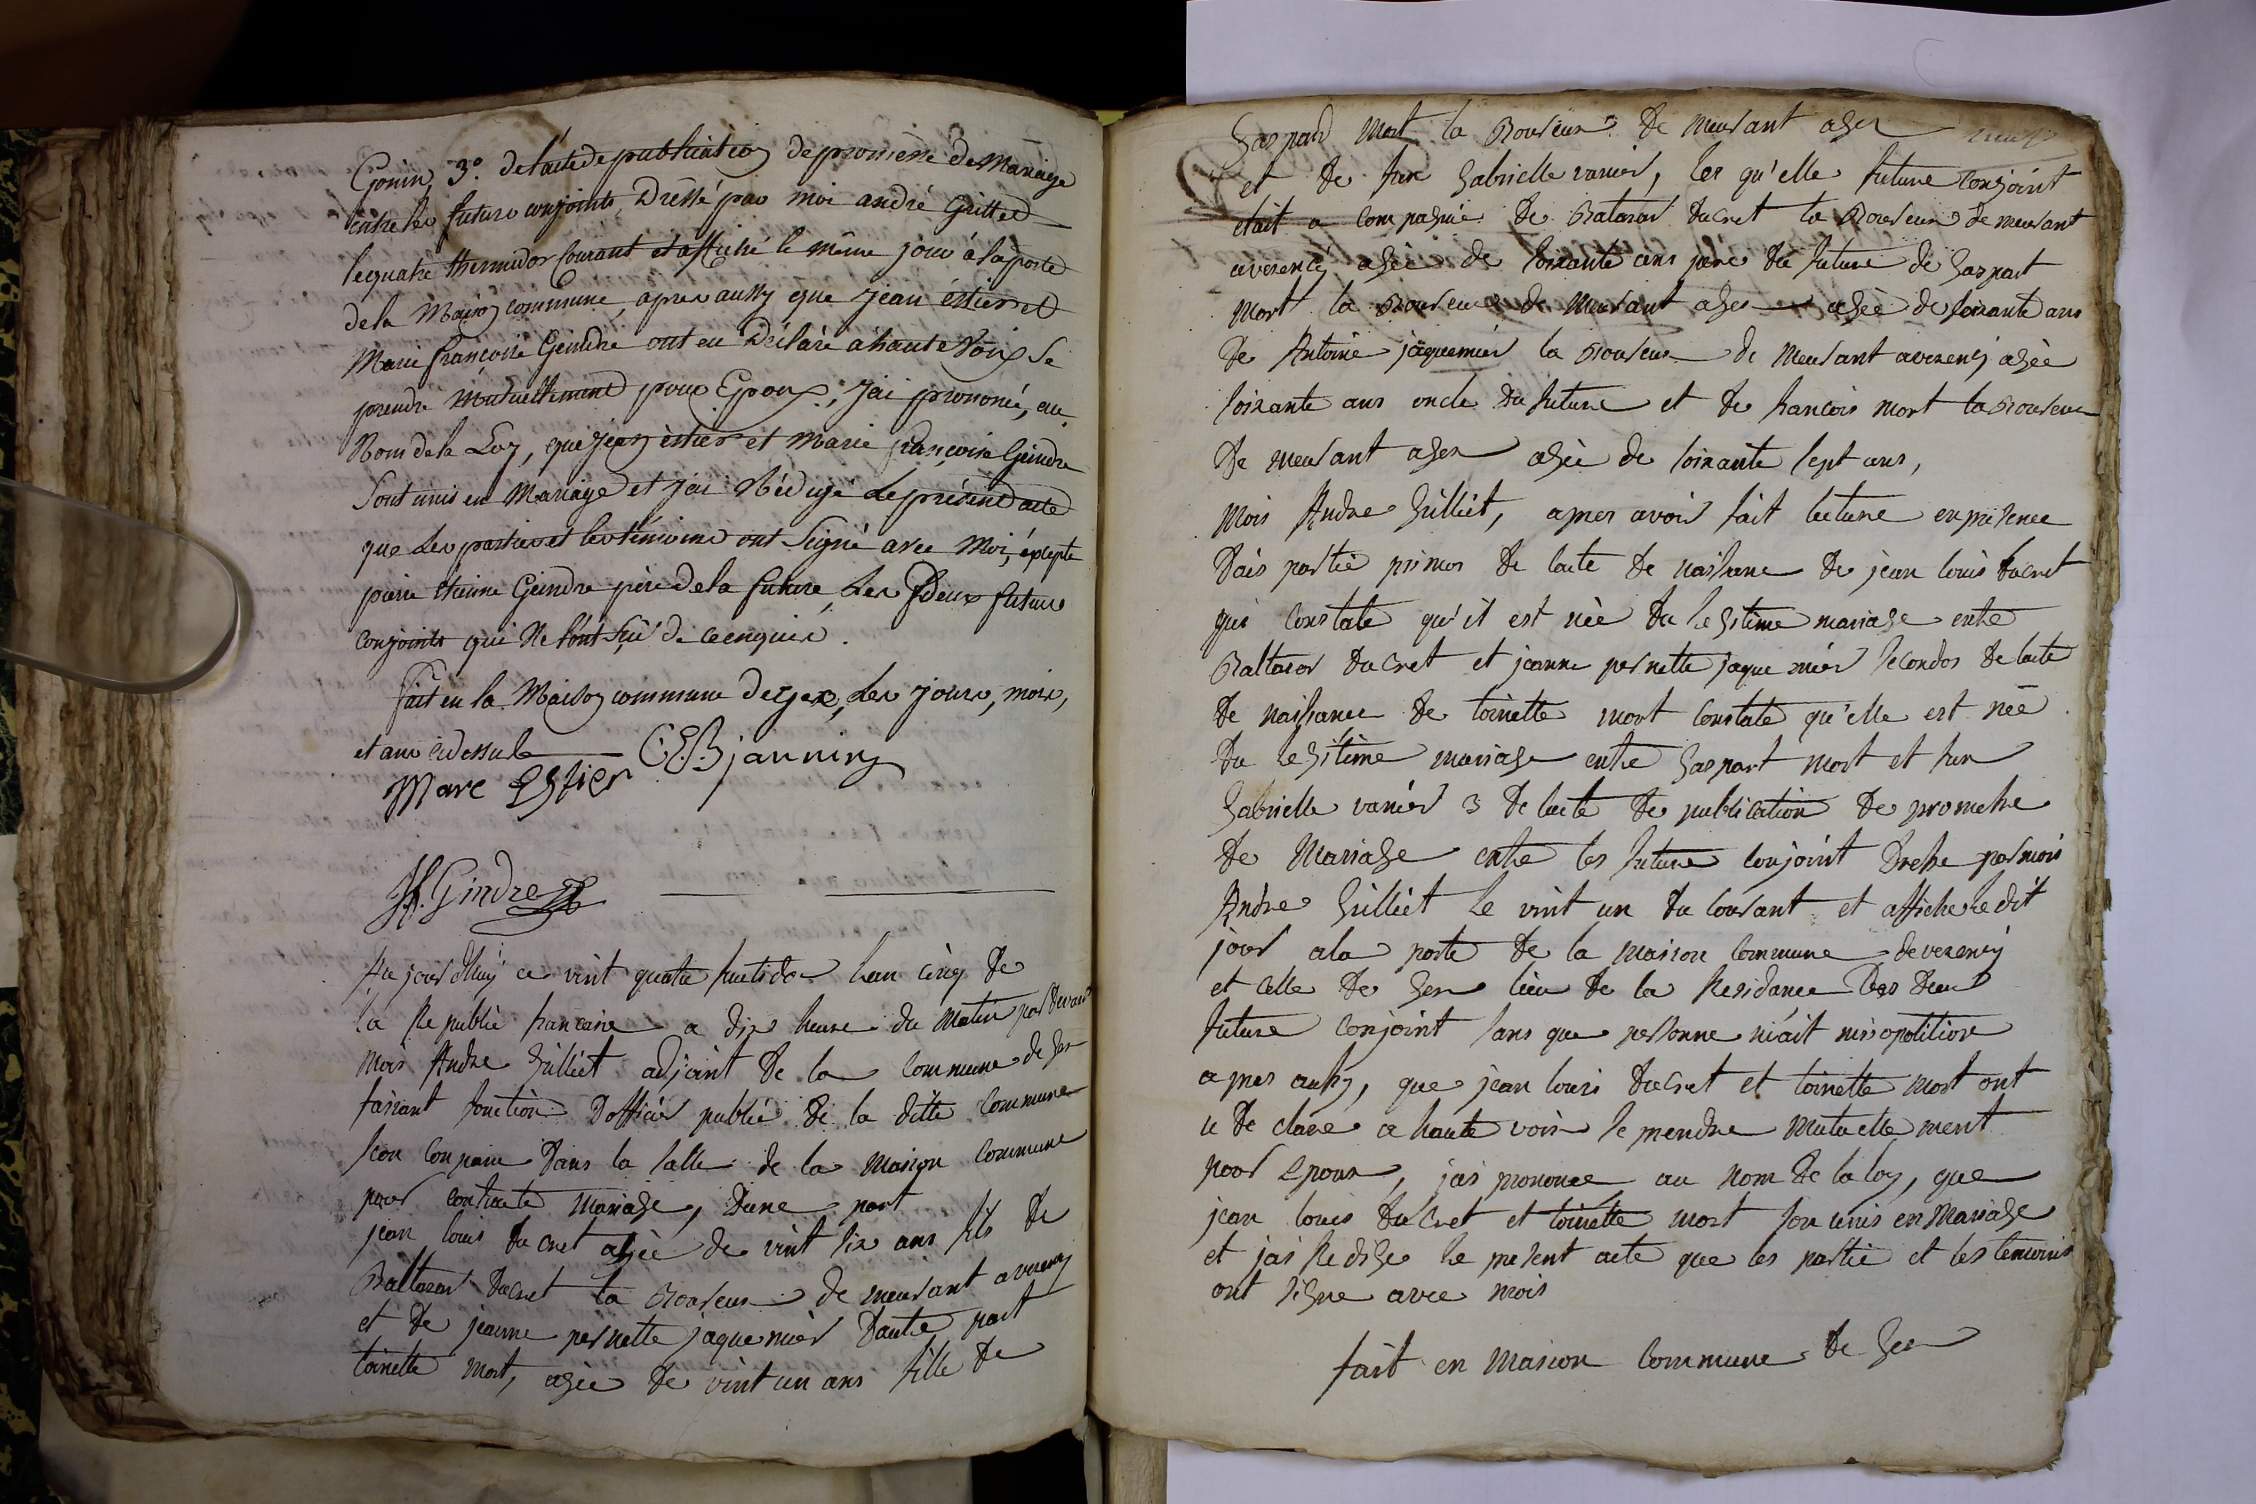 Gonin, 3.o de l'acte de publication de promesse de Mariage
entre les futurs conjoints Dressé par moi andré Gilliet
le quatre thermidor Courant et affiché le même jour à la porte
de la Maison commune, après aussy que Jean éstier et
Marie françoise Geindre ont eu Déclaré à haute Voix Se
prendre Mutuellement pour Epoux; j'ai prononcé, au
Nom de la Loy, que jean éstier et Marie françoise Geindre
Sont unis en Mariage et j'ai Rédigé Le présent acte
que Les parties et les témoins ont Signé avec Moi, éxcepté
pierre étienne Geindre père de la future, Les deux futurs
conjoints qui Ne l'ont Sçu de ce enquis.
fait en la Maison commune de gex, Les jours, mois,
et ans cidessus
C.E.B janning
Marc Estier
Gindre
Au jourdhuy ce vint quatre fructidor lan cinq de
la Republic francaise a dix heure du matin par devant
mois Andre Gilliet adjoint de la commune de Gex
faisant fonction Dofficier public de la ditte commune
son conparu Dans la salle de la maison commune
pour contracte mariage, Dune part
jean louis ducret agée de vint six ans fils de
Baltazar ducret la Boureur de meurant averency
et de jeanne pernette jaquemier Dautre part
toinette mort, agée de vint un ans fille de
Gaspard Mort la Boureur de meurant a gex
et de fue Gabrielle vanier, les qu'elle future conjoint
etait a compagnié de Batazar ducret la Boureur de meurant
averency agée de soixante ans pere du future de Gaspart
Mort la Boureur de Meurant a gex agée de soixante ans
de Antoine jaquemier la Boureur de Meurant averency agée
soixante ans oncle du future et de francois mort la Boureur
de meurant a gex agée de soixante sept ans,
Mois Andre Gilliet, apres avoir fait lecture en presence
dais partie primos de lacte de naisance de jean louis ducret
qui constate qu'il est née du legitime mariage entre
Baltazar ducret et jeanne pernette jaquemier secondos de lacte
de naissance de toinette mort constate qu'elle est née
du legitime mariage entre Gaspart mort et fue
Gabrielle vanier 3 de lacte de publication de promesse
de Mariage entre les future conjoint Dresse par mois
Andre Gilliet le vint un du courant et affiche le dit
jour a la porte de la maison commune de verency
et celle de Gex lieu de la Residance Des deux
future conjoint sans que personne niait mis opolition
apres aussy, que jean louis ducret et toinette mort ont
u de clare a haute voix se prendre mutuellement
pour Epoux, jai prononce au nom de la loy, que
jean louis ducret et toinette mort son unis en Mariage
et jai Redige le present acte que les partie et les temoins
ont signe avec mois
fait en maison commune de Gex